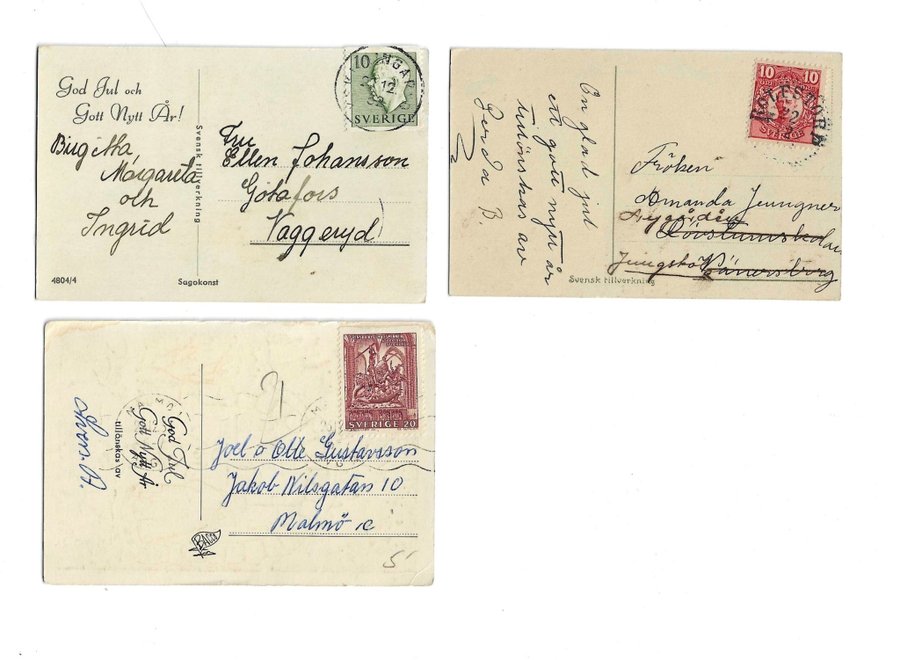 God Jul och
Gott Nytt År!
Birgitta,
Margareta
och
Ingrid
4804/4
Svensk tillverkning
Sagokonst
10
SVERIGE
Fru
Ellen Johansson
Götafors
Vaggeryd
En glad jul
ett gott nytt år
tillönskas av
Gerda B.
Svensk tillverkning
10 10
SVERIGE
Fröken
Amanda Ljungner
Vänersborg
God Jul
Gott Nytt År
tillönskas av
BACO
SVERIGE 20
Joel o Otte Gustavsson
Jakob Nilsgatan 10
Malmö C
5